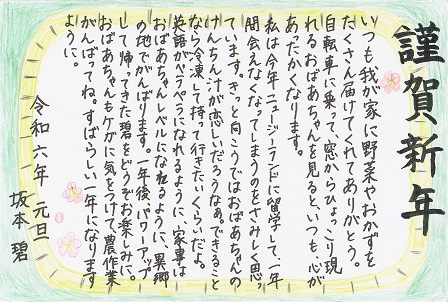 謹賀新年
いつも我が家に野菜やおかずを
たくさん届けてくれてありがとう。
自転車に乗って、窓からひょっこり現
れるおばあちゃんを見ると、いつも、心が
あったかくなります。
私は今年ニュージーランドに留学して、一年
間会えなくなってしまうのをさみしく思っ
ています。きっと向こうではおばあちゃんの
けんちん汁が恋しいだろうなあ。できること
なら冷凍して持って行きたいくらいだよ。
英語がペラペラになれるように、家事は
おばあちゃんレベルになれるように、異郷
の地でがんばります。一年後、パワーアップ
して帰ってきた碧をどうぞお楽しみに。
おばあちゃんもケガに気をつけて、農作業
がんばってね。すばらしい一年になります
ように。
令和六年 元旦
坂本 碧